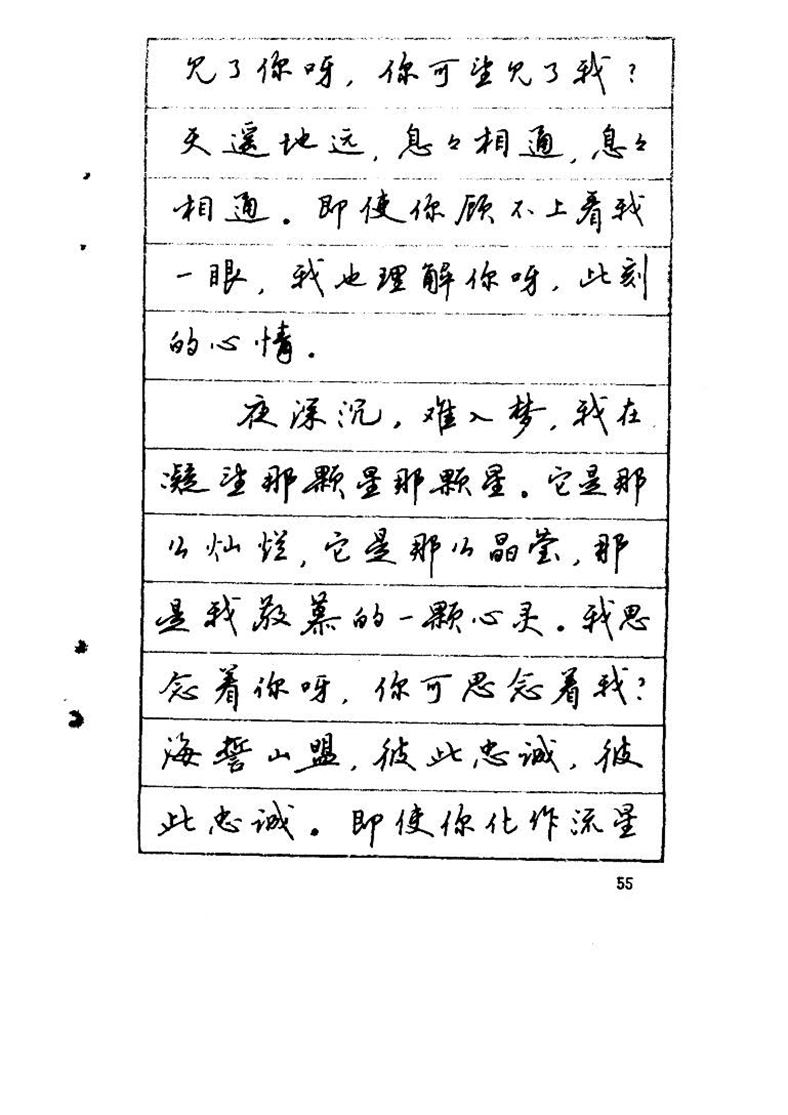 见了你呀，你可望见了我？
天遥地远，息々相通，息々
相通。即使你顾不上看我
一眼，我也理解你呀，此刻
的心情。
夜深沉，难入梦，我在
凝望那颗星那颗星。它是那
么灿烂，它是那么晶莹，那
是我敬慕的一颗心灵。我思
念着你呀，你可思念着我？
海誓山盟，彼此忠诚，彼
此忠诚。即使你化作流星
55